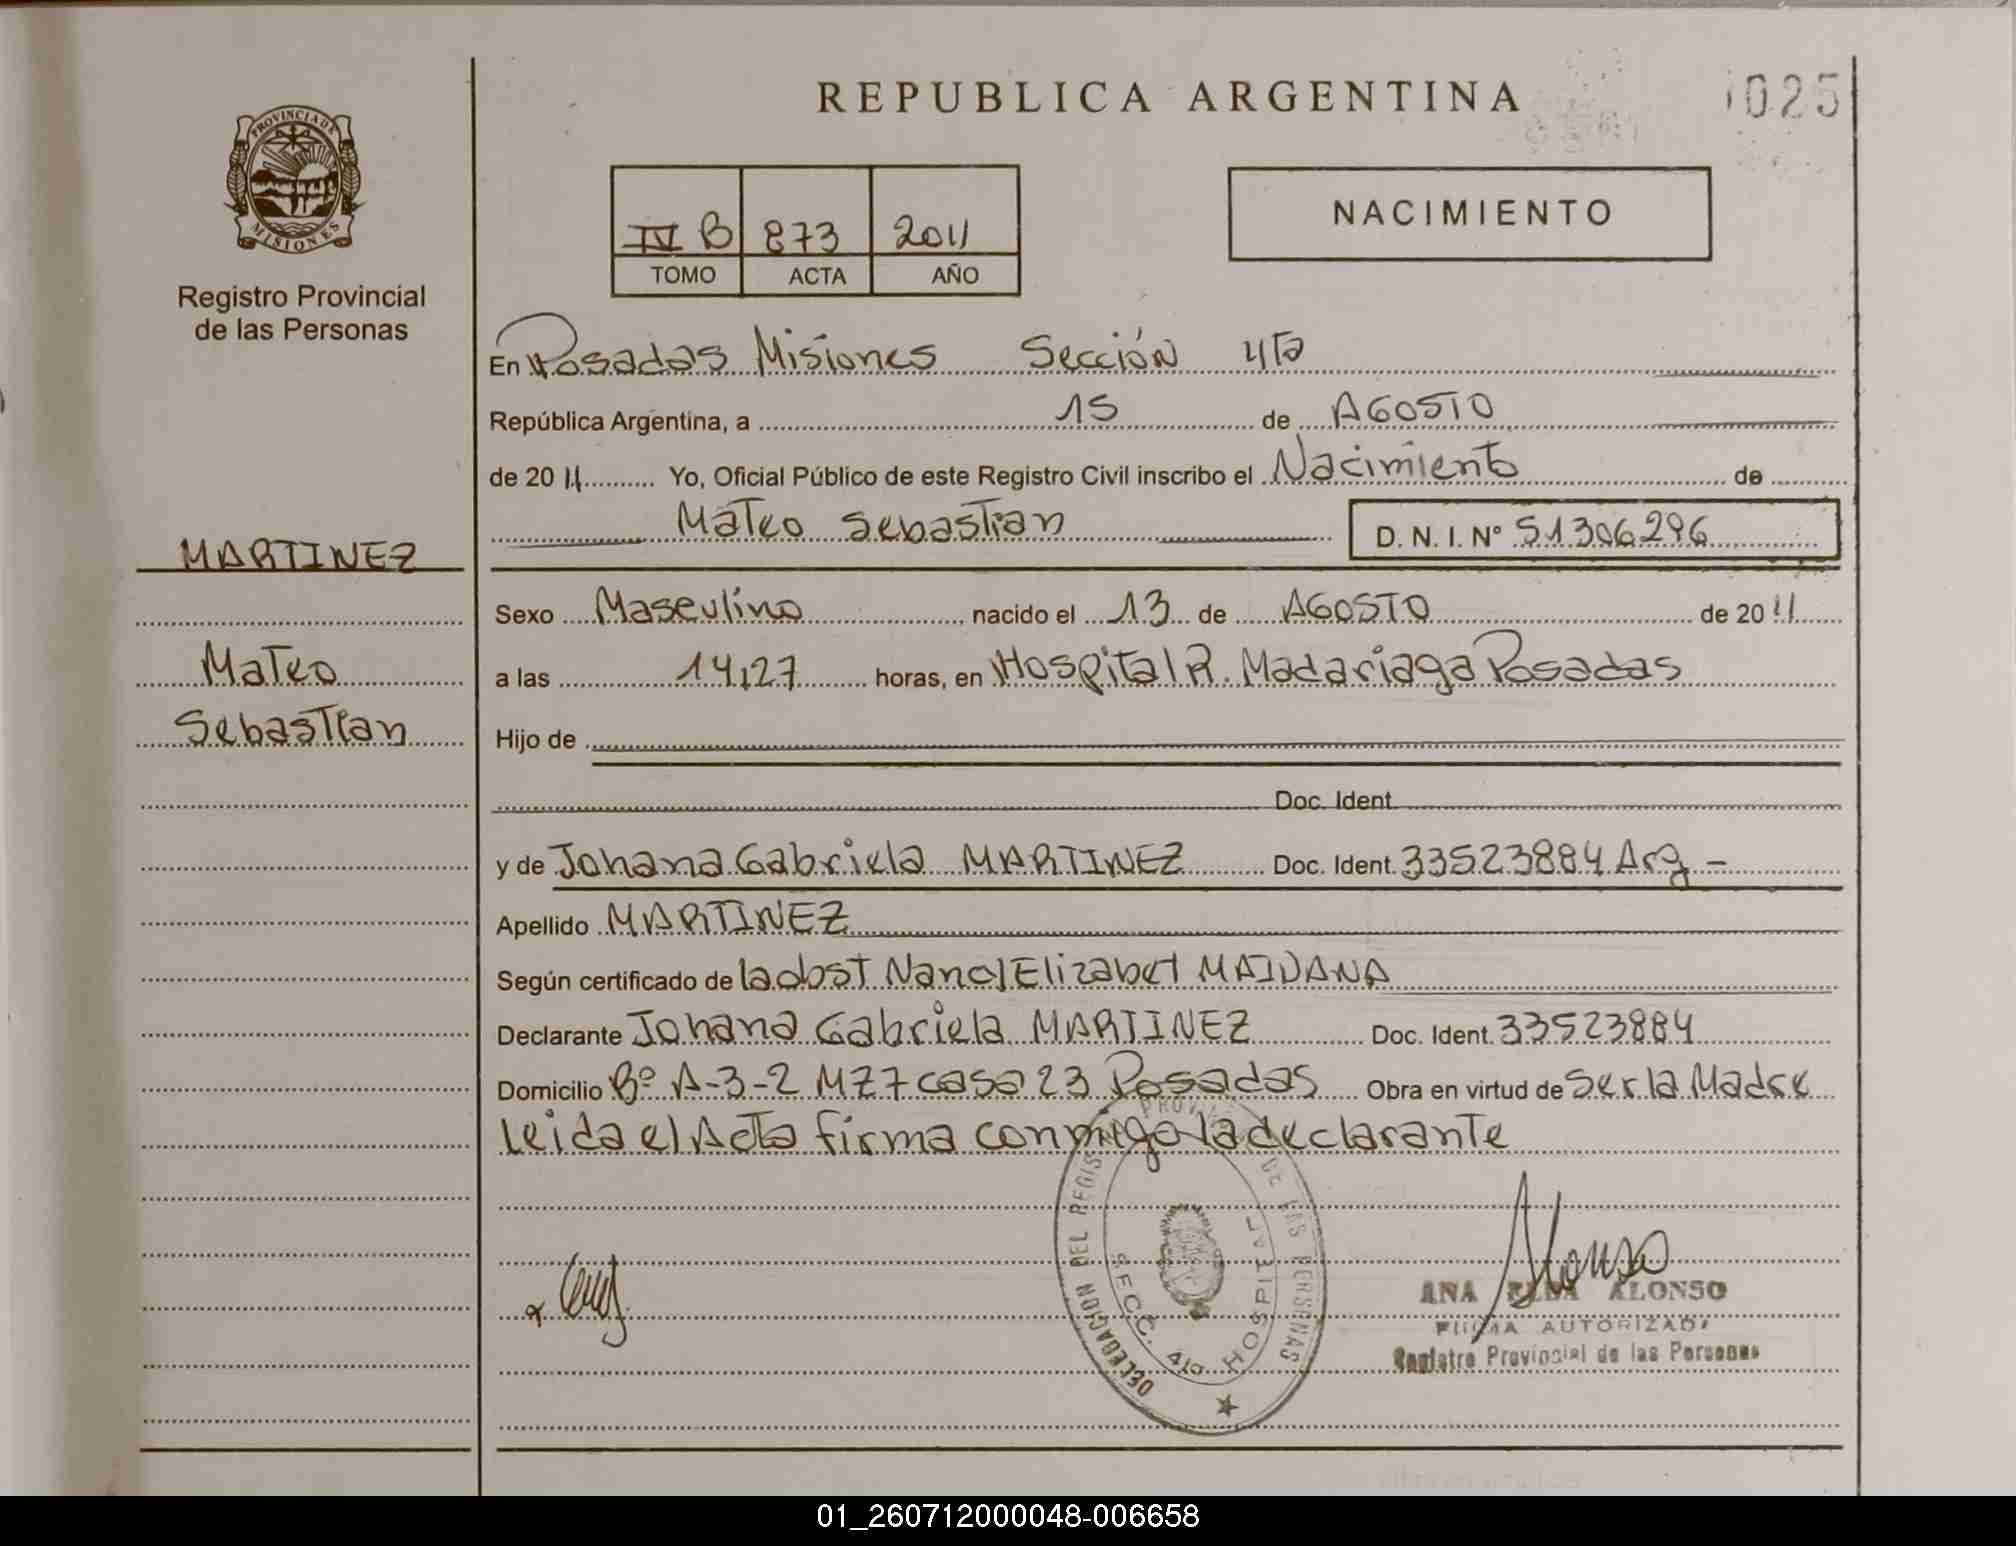 REPUBLICA ARGENTINA
025
PROVINCIA DE
MISIONES
Registro Provincial
de las Personas
IV B 873 2011
TOMO ACTA AÑO
NACIMIENTO
En Posadas Misiones Sección 4ta
República Argentina, a 15 de AGOSTO
de 2011 Yo, Oficial Público de este Registro Civil inscribo el Nacimiento de
Mateo Sebastian D. N. I. N° 51306296
MARTINEZ
Mateo
Sebastian
Sexo Masculino nacido el 13 de AGOSTO de 2011
a las 14,27 horas, en Hospital R. Madariaga Posadas
Hijo de
Doc. Ident.
y de Johana Gabriela MARTINEZ Doc. Ident. 33523884 Arg -
Apellido MARTINEZ
Según certificado de la obst Nancy Elizabet MAIDANA
Declarante Johana Gabriela MARTINEZ Doc. Ident. 33523884
Domicilio Bº A-3-2 MZ7 casa 23 Posadas Obra en virtud de Ser la Madre
Leida el Acta firma conmigo la declarante
DELEGACION DEL REGIS PROV DE LAS PERSONAS
SECC. 4ta HOSPITAL
Alonso
ANA ALONSO
FIRMA AUTORIZADA
Registro Provincial de las Personas
01_260712000048-006658